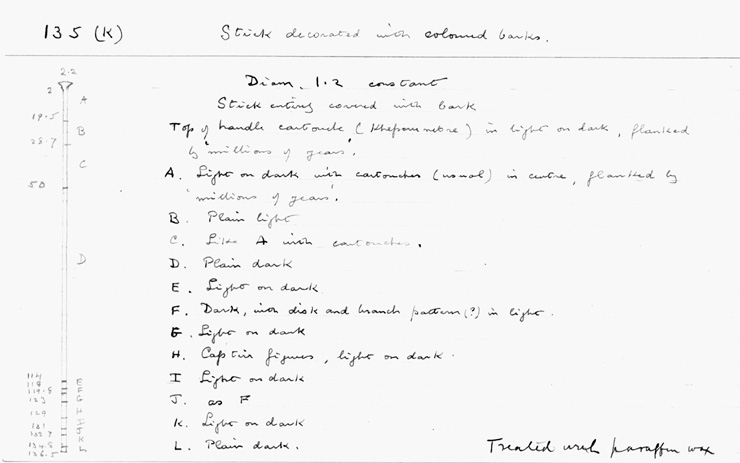 135 (K) Stick decorated with coloured barks.
2.2
Diam. 1.2 constant
Stick entirely covered with bark
Top of handle cartouche (Kheperunebre) in light on dark, flanked
by 'millions of years'.
A. Light on dark with cartouches (usual) in centre, flanked by
'millions of years'.
B. Plain light
C. Like A with cartouches.
D. Plain dark
E. Light on dark
F. Dark, with disk and branch pattern (?) in light.
G. Light on dark
H. Captive figures, light on dark.
I Light on dark
J. as F
K. Light on dark
L. Plain dark.
Treated with paraffin wax
2
A
19.5
B
28.7
C
50
D
114
118
E
119.5
F
123
G
129
H
131
J
132.7
K
134.5
L
136.5